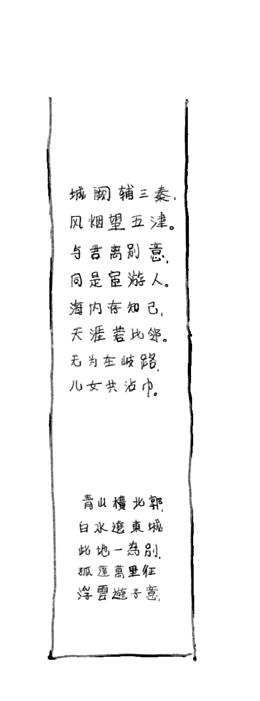 城阙辅三秦,
风烟望五津。
与君离别意,
同是宦游人。
海内存知己,
天涯若比邻。
无为在岐路,
儿女共沾巾。
青山横北郭,
白水遶東城
此地一為別,
孤蓬萬里征
浮雲遊子意,